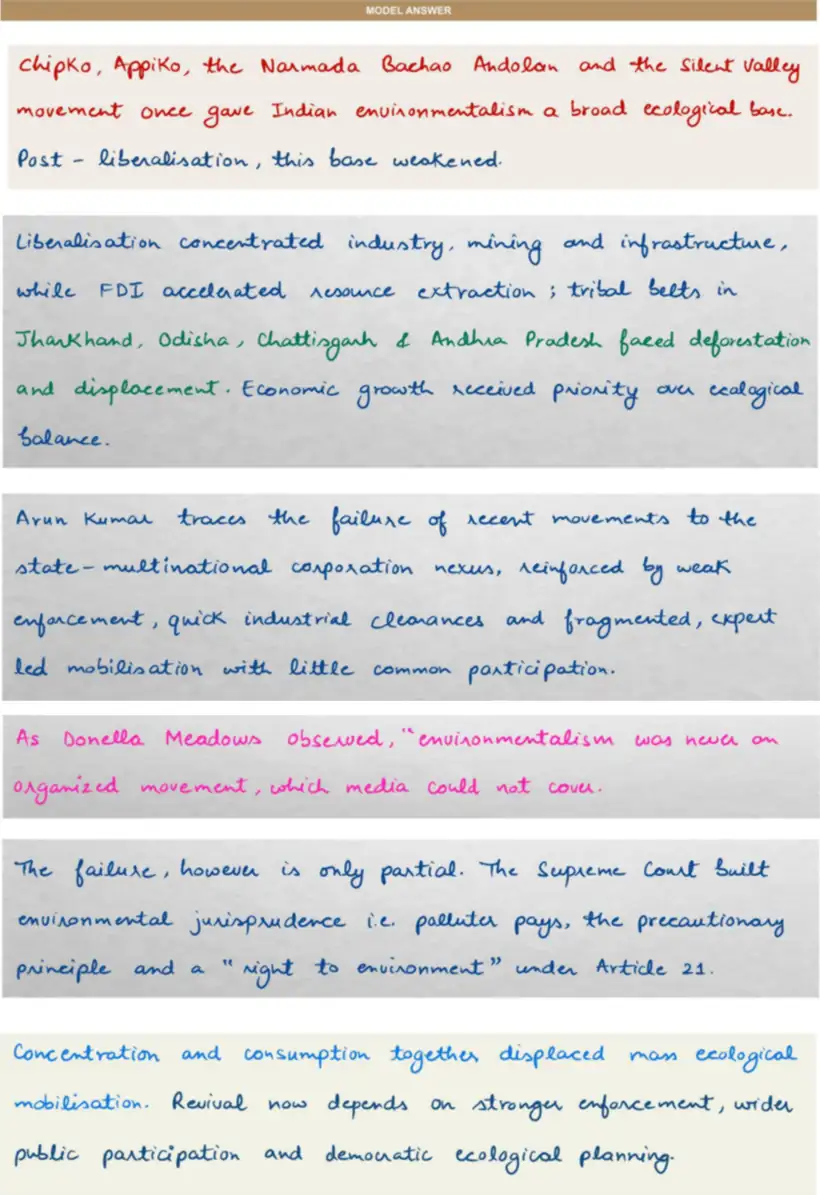 MODEL ANSWER
Chipko, Appiko, the Narmada Bachao Andolan and the Silent Valley
movement once gave Indian environmentalism a broad ecological base.
Post - liberalisation, this base weakened.
Liberalisation concentrated industry, mining and infrastructure,
while FDI accelerated resource extraction ; tribal belts in
Jharkhand, Odisha, Chattisgarh & Andhra Pradesh faced deforestation
and displacement. Economic growth received priority over ecological
balance.
Arun Kumar traces the failure of recent movements to the
state-multinational corporation nexus, reinforced by weak
enforcement, quick industrial clearances and fragmented, expert
led mobilisation with little common participation.
As Donella Meadows observed, "environmentalism was never an
organized movement, which media could not cover.
The failure, however is only partial. The Supreme Court built
environmental jurisprudence i.e. polluter pays, the precautionary
principle and a "right to environment" under Article 21.
Concentration and consumption together displaced mass ecological
mobilisation. Revival now depends on stronger enforcement, wider
public participation and democratic ecological planning.